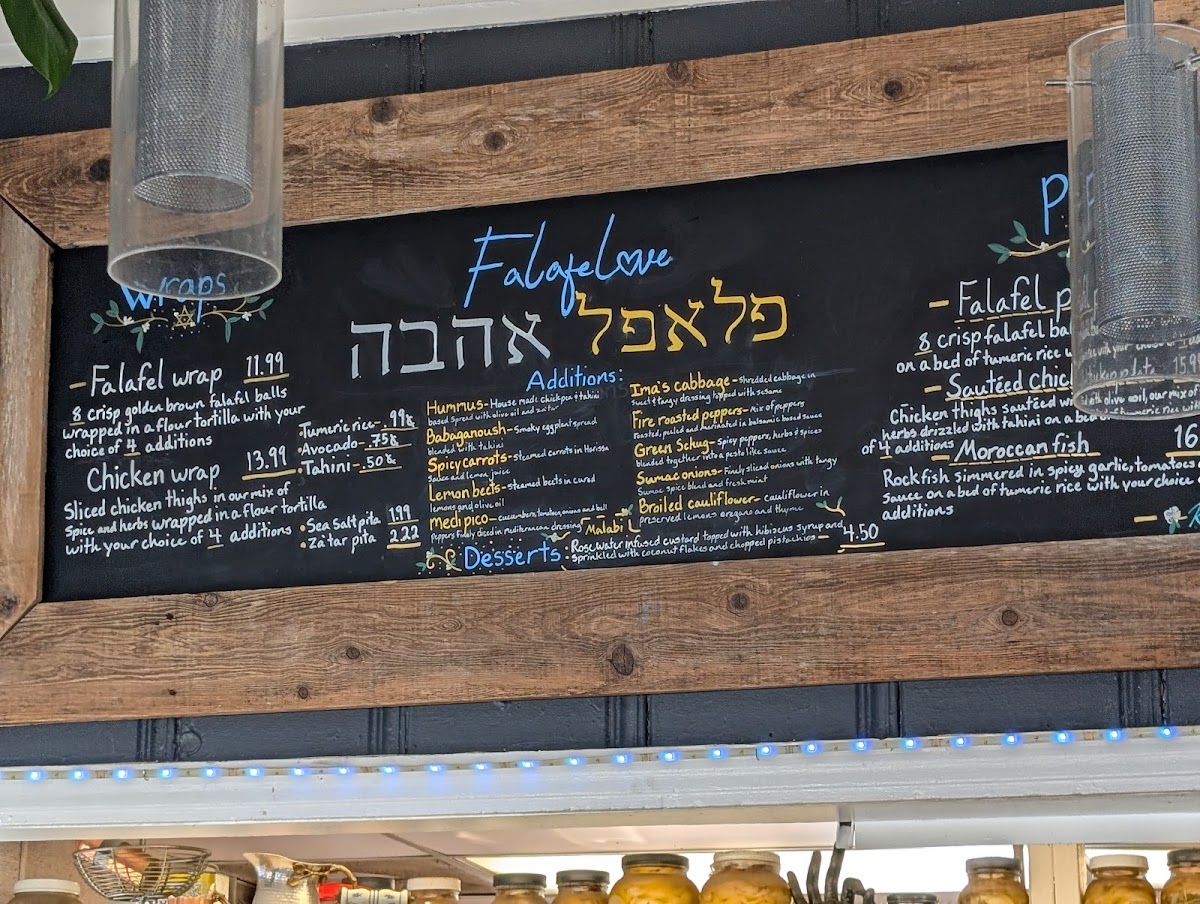 Wraps
- Falafel wrap 11.99
8 crisp golden brown falafel balls
wrapped in a flour tortilla with your
choice of 4 additions
Chicken wrap 13.99
Sliced chicken thighs in our mix of
spice and herbs wrapped in a flour tortilla
with your choice of 4 additions
•Tumeric rice - .99¢
•Avocado - .75¢
•Tahini - .50¢
•Sea Salt pita 1.99
•Za'tar pita 2.22
Falafelove
פלאפל אהבה
Additions:
Hummus - House made chickpea + tahini
based spread with olive oil and za'tar
Babaganoush - Smoky eggplant spread
blended with tahini
Spicy carrots - steamed carrots in Harissa
sauce and lemon juice
Lemon beets - steamed beets in cured
lemons and olive oil
medi pico - cucumbers, tomatoes, onions and bell
peppers finely diced in mediterranean dressing
Ima's cabbage - shredded cabbage in
sweet & tangy dressing topped with sesame
Fire roasted peppers - Mix of peppers
Roasted, peeled and marinated in balsamic based sauce
Green Schug - Spicy peppers, herbs & spices
blended together into a pesto like sauce
Sumac onions - Finely sliced onions with tangy
Sumac spice blend and fresh mint
Broiled cauliflower - cauliflower in
preserved lemons oregano and thyme
Desserts:
Malabi
Rosewater infused custard topped with hibiscus syrup and
sprinkled with coconut flakes and chopped pistachios - 4.50
P
- Falafel p
8 crisp falafel ba
on a bed of tumeric rice w
- Sautéed Chic
Chicken thighs sautéed w
herbs drizzled with tahini on a bed
of 4 additions
- Moroccan fish 16
Rockfish simmered in spicy garlic, tomatoes
sauce on a bed of tumeric rice with your choice
additions